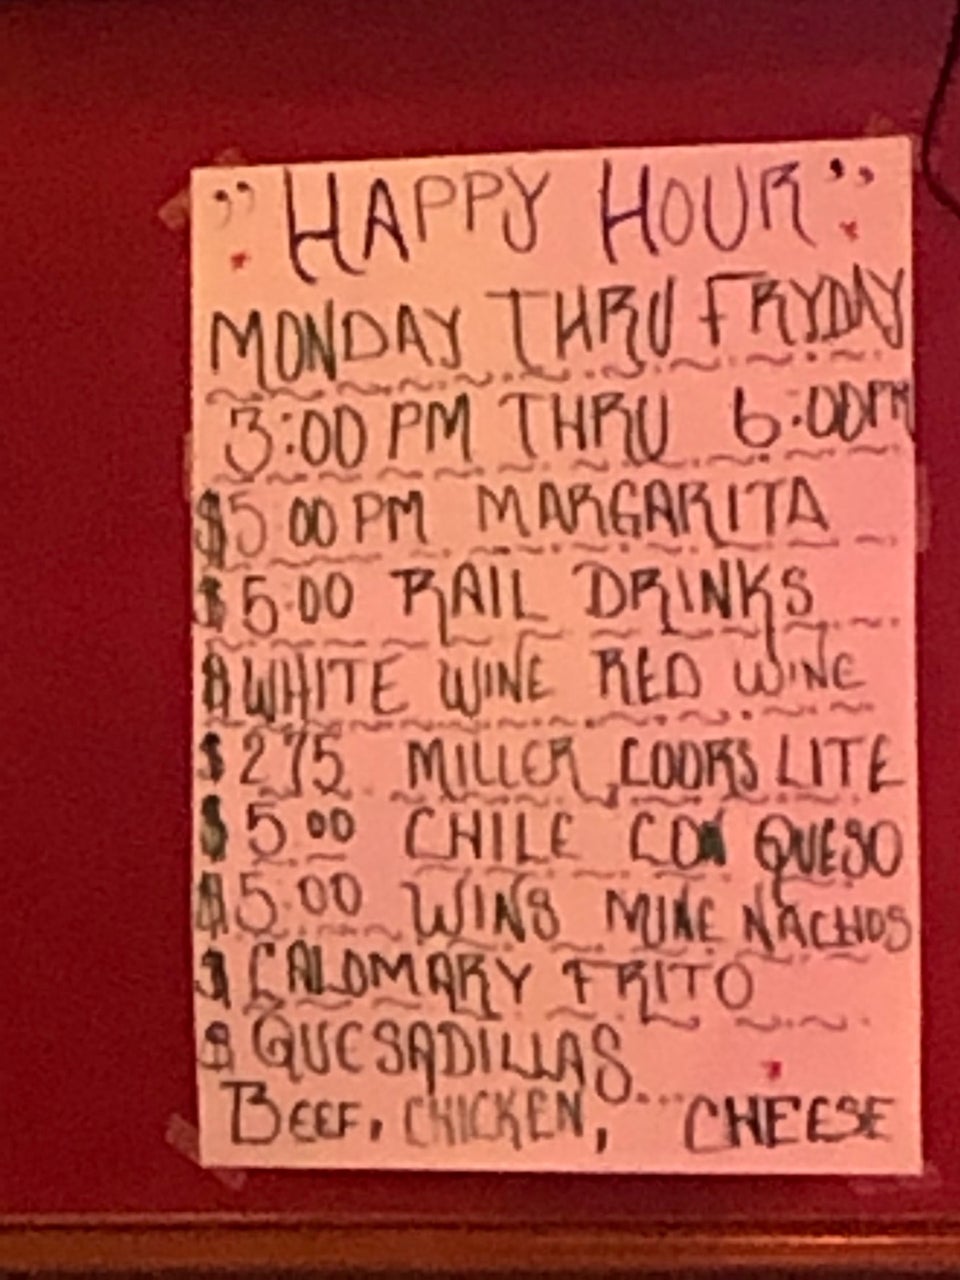 " HAPPY HOUR "
MONDAY THRU FRYDAY
3:00 PM THRU 6:00PM
$5 00 PM MARGARITA
$5.00 RAIL DRINKS
$ WHITE WINE RED WINE
$275 MILLER COORS LITE
$5.00 CHILE CON QUESO
$5.00 WINS MINE NACHOS
$ CALOMARY FRITO
$ QUESADILLAS...
BEEF, CHICKEN, CHEESE